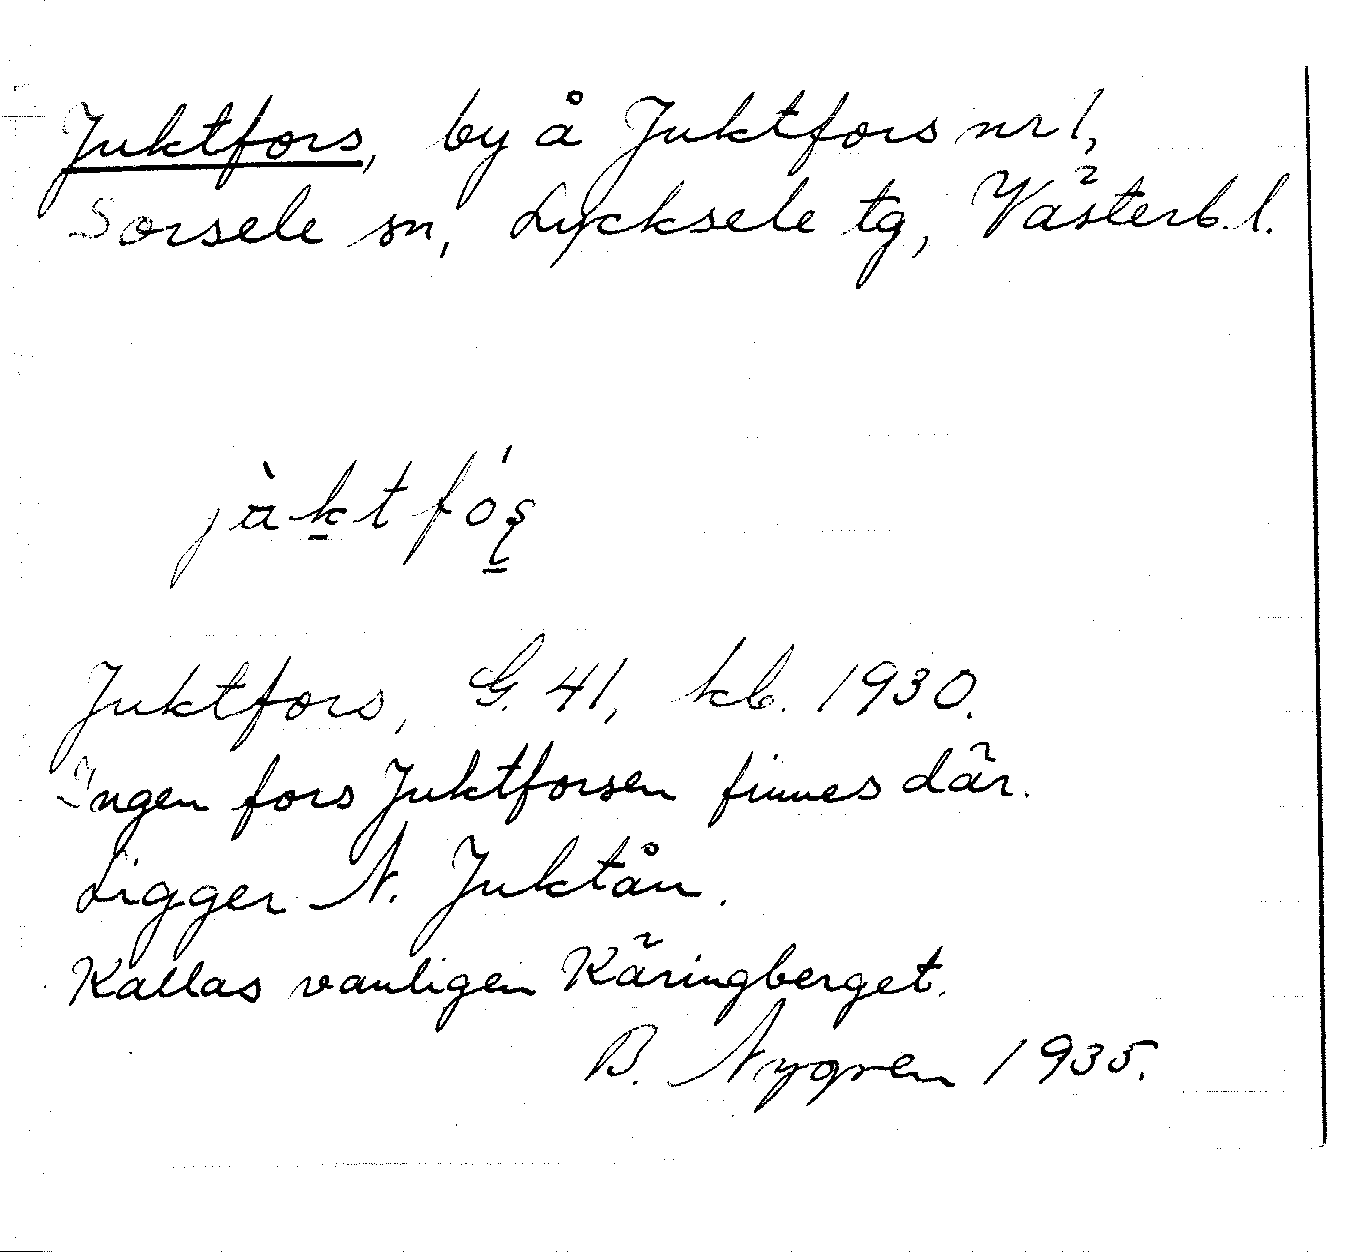 Juktfors, by å Juktfors nr 1,
Sorsele sn, Lycksele tg, Västerb. l.
jàktfós̱
Juktfors, G. 41, kb. 1930.
Ingen fors Juktforsen finnes där.
Ligger N. Juktån.
Kallas vanligen Käringberget.
B. Nygren 1935.